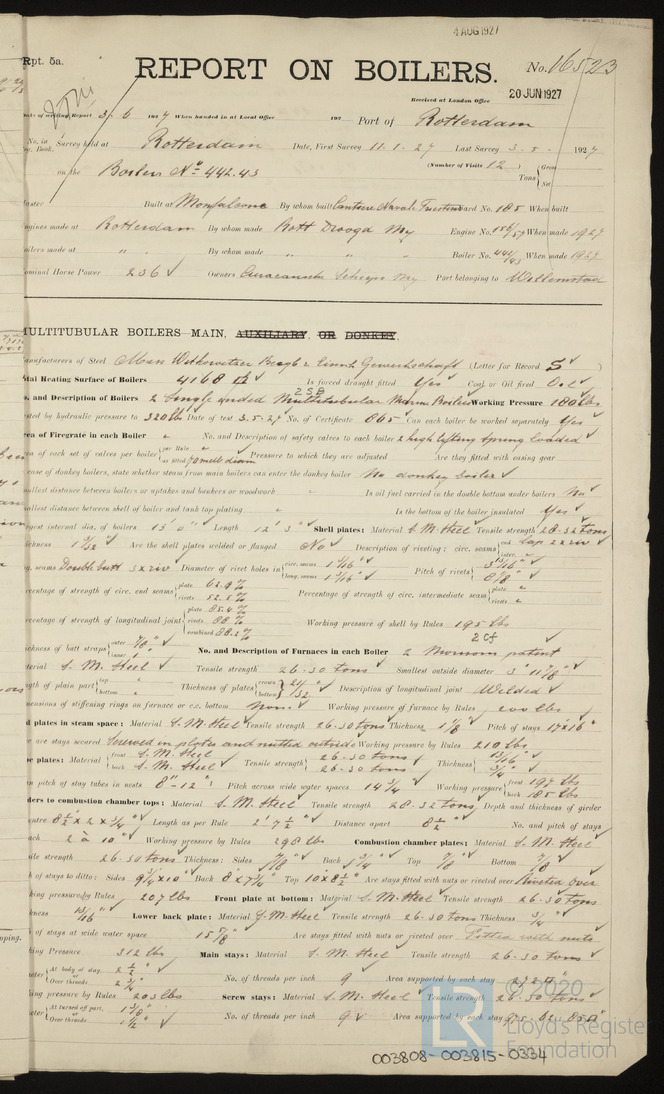 4 AUG 1927
Rpt. 5a.
REPORT ON BOILERS.
No. 16523
Received at London Office
20 JUN 1927
of writing Report 3. 6 1927 When handed in at Local Office 192 Port of Rotterdam
No. in Book. Survey held at Rotterdam Date, First Survey 11.1.27 Last Survey 3. 1927
(Number of Visits 12) Gross
Tons Net
on the Boilers No 442.43
Built at Monfalcone By whom built Cantiere Navale Triestino Yard No. 185 When built
Engines made at Rotterdam By whom made Rott Drooge My Engine No. When made 1927
Boilers made at " " By whom made " " " Boiler No. When made 1927
Nominal Horse Power 236 Owners Port belonging to Willemstad
MULTITUBULAR BOILERS MAIN, AUXILIARY, OR DONKEY.
Manufacturers of Steel Witkowitzer (Letter for Record S)
Total Heating Surface of Boilers 4168 Is forced draught fitted Yes Coal or Oil fired Oil
No. and Description of Boilers 2 Single Ended Multitubular Marine Boilers Working Pressure 180 lbs
Tested by hydraulic pressure to 320 lbs Date of test 3.5.27 No. of Certificate 865 Can each boiler be worked separately Yes
Area of Firegrate in each Boiler " No. and Description of safety valves to each boiler 2 high lifting spring loaded
Area of each set of valves per boiler per Rule as fitted Pressure to which they are adjusted Are they fitted with easing gear
case of donkey boilers, state whether steam from main boilers can enter the donkey boiler No donkey boiler
Smallest distance between boilers or uptakes and bunkers or woodwork " Is oil fuel carried in the double bottom under boilers No
Smallest distance between shell of boiler and tank top plating " Is the bottom of the boiler insulated Yes
Largest internal dia. of boilers 13' 0" Length 12' 3" Shell plates: Material S. M. Steel Tensile strength 28.32 tons
Thickness 1 3/32 Are the shell plates welded or flanged No Description of riveting: circ. seams end lap 2 x riv
long. seams Double butt 3 x riv Diameter of rivet holes in circ. seams 1 3/16" long. seams 1 3/16" Pitch of rivets
Percentage of strength of circ. end seams plate 62.9 % rivets 52.5 % Percentage of strength of circ. intermediate seam plate " rivets "
Percentage of strength of longitudinal joint plate 85.4 % rivets 88 % combined 88.2 % Working pressure of shell by Rules 195 lbs
Thickness of butt straps outer 7/8" inner No. and Description of Furnaces in each Boiler 2 Morison patent
Material S. M. Steel Tensile strength 26-30 tons Smallest outside diameter 3' 11 7/8"
Length of plain part top bottom Thickness of plates crown bottom 21/32 Description of longitudinal joint Welded
Dimensions of stiffening rings on furnace or c.c. bottom None Working pressure of furnace by Rules 200 lbs
End plates in steam space: Material S. M. Steel Tensile strength 26-30 tons Thickness 1 1/8 Pitch of stays 17 x 16"
How are stays secured Screwed in plates and nutted outside Working pressure by Rules 210 lbs
Tube plates: Material front S. M. Steel back S. M. Steel Tensile strength 26-30 tons 26-30 tons Thickness 13/16" 3/4"
Mean pitch of stay tubes in nests 8"-12" Pitch across wide water spaces 14 3/4" Working pressure front 197 lbs back 185 lbs
Girders to combustion chamber tops: Material S. M. Steel Tensile strength 28-32 tons Depth and thickness of girder
centre 8 1/2 x 2 x 3/4" Length as per Rule 2' 7 1/2" Distance apart 8 1/2" No. and pitch of stays
each 2 à 10" Working pressure by Rules 298 lbs Combustion chamber plates: Material S. M. Steel
Tensile strength 26-30 tons Thickness: Sides Back 3/4" Top Bottom
Pitch of stays to ditto: Sides 9 3/4 x 10" Back 8 x 7 1/4" Top 10 x 8 1/2" Are stays fitted with nuts or riveted over Riveted over
Working pressure by Rules 207 lbs Front plate at bottom: Material S. M. Steel Tensile strength 26-30 tons
Thickness 13/16 Lower back plate: Material S. M. Steel Tensile strength 26-30 tons Thickness 3/4"
Pitch of stays at wide water space 15 7/8" Are stays fitted with nuts or riveted over Fitted with nuts
Working Pressure 312 lbs Main stays: Material S. M. Steel Tensile strength 26-30 tons
Diameter At body of stay, or Over threads 2 1/2" 2 3/4" No. of threads per inch 9 Area supported by each stay
Working pressure by Rules 203 lbs Screw stays: Material S. M. Steel Tensile strength 26-30 tons
Diameter At turned off part, or Over threads 1 3/8" 1 1/2" No. of threads per inch 9 Area supported by each stay
© 2020
Lloyd's Register
Foundation
003808-003815-0334